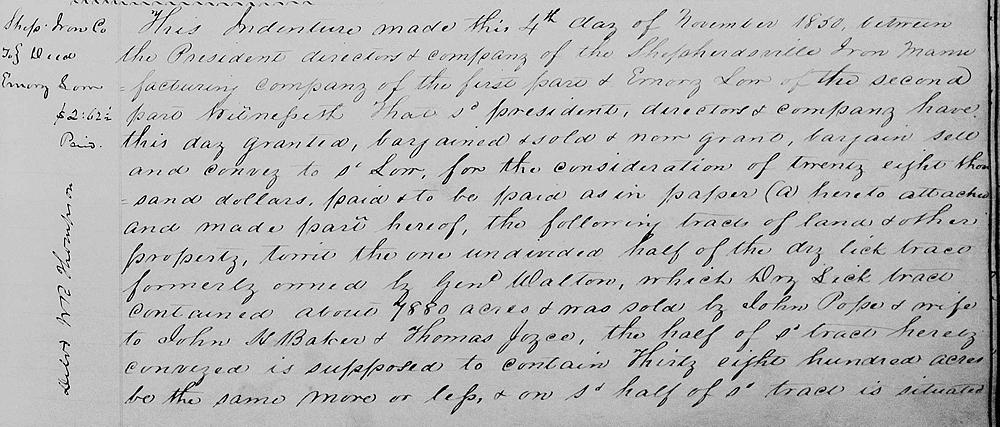 Shep. Iron Co
To} Deed
Emory Low
$2.62½
Paid.
Deld W R Thompson
This Indenture made this 4th day of November 1850, between
the President directors & company of the Shepherdsville Iron Manu
=facturing company of the first part & Emory Low of the second
part Witnesseth That sd president, directors & company have
this day granted, bargained & sold & now grant, bargain sell
and convey to sd Low, for the consideration of twenty eight thou
=sand dollars, paid & to be paid as in paper (a) hereto attached
and made part hereof, the following tracts of land & other
property, towit the one undivided half of the dry lick tract
formerly owned by Genl Walton, which Dry Lick tract
contained about 7880 acres & was sold by John Pope & wife
to John H Baker & Thomas Joyce, the half of sd tract hereby
conveyed is supposed to contain Thirty eight hundred acres
be the same more or less, & on sd half of sd tract is situated